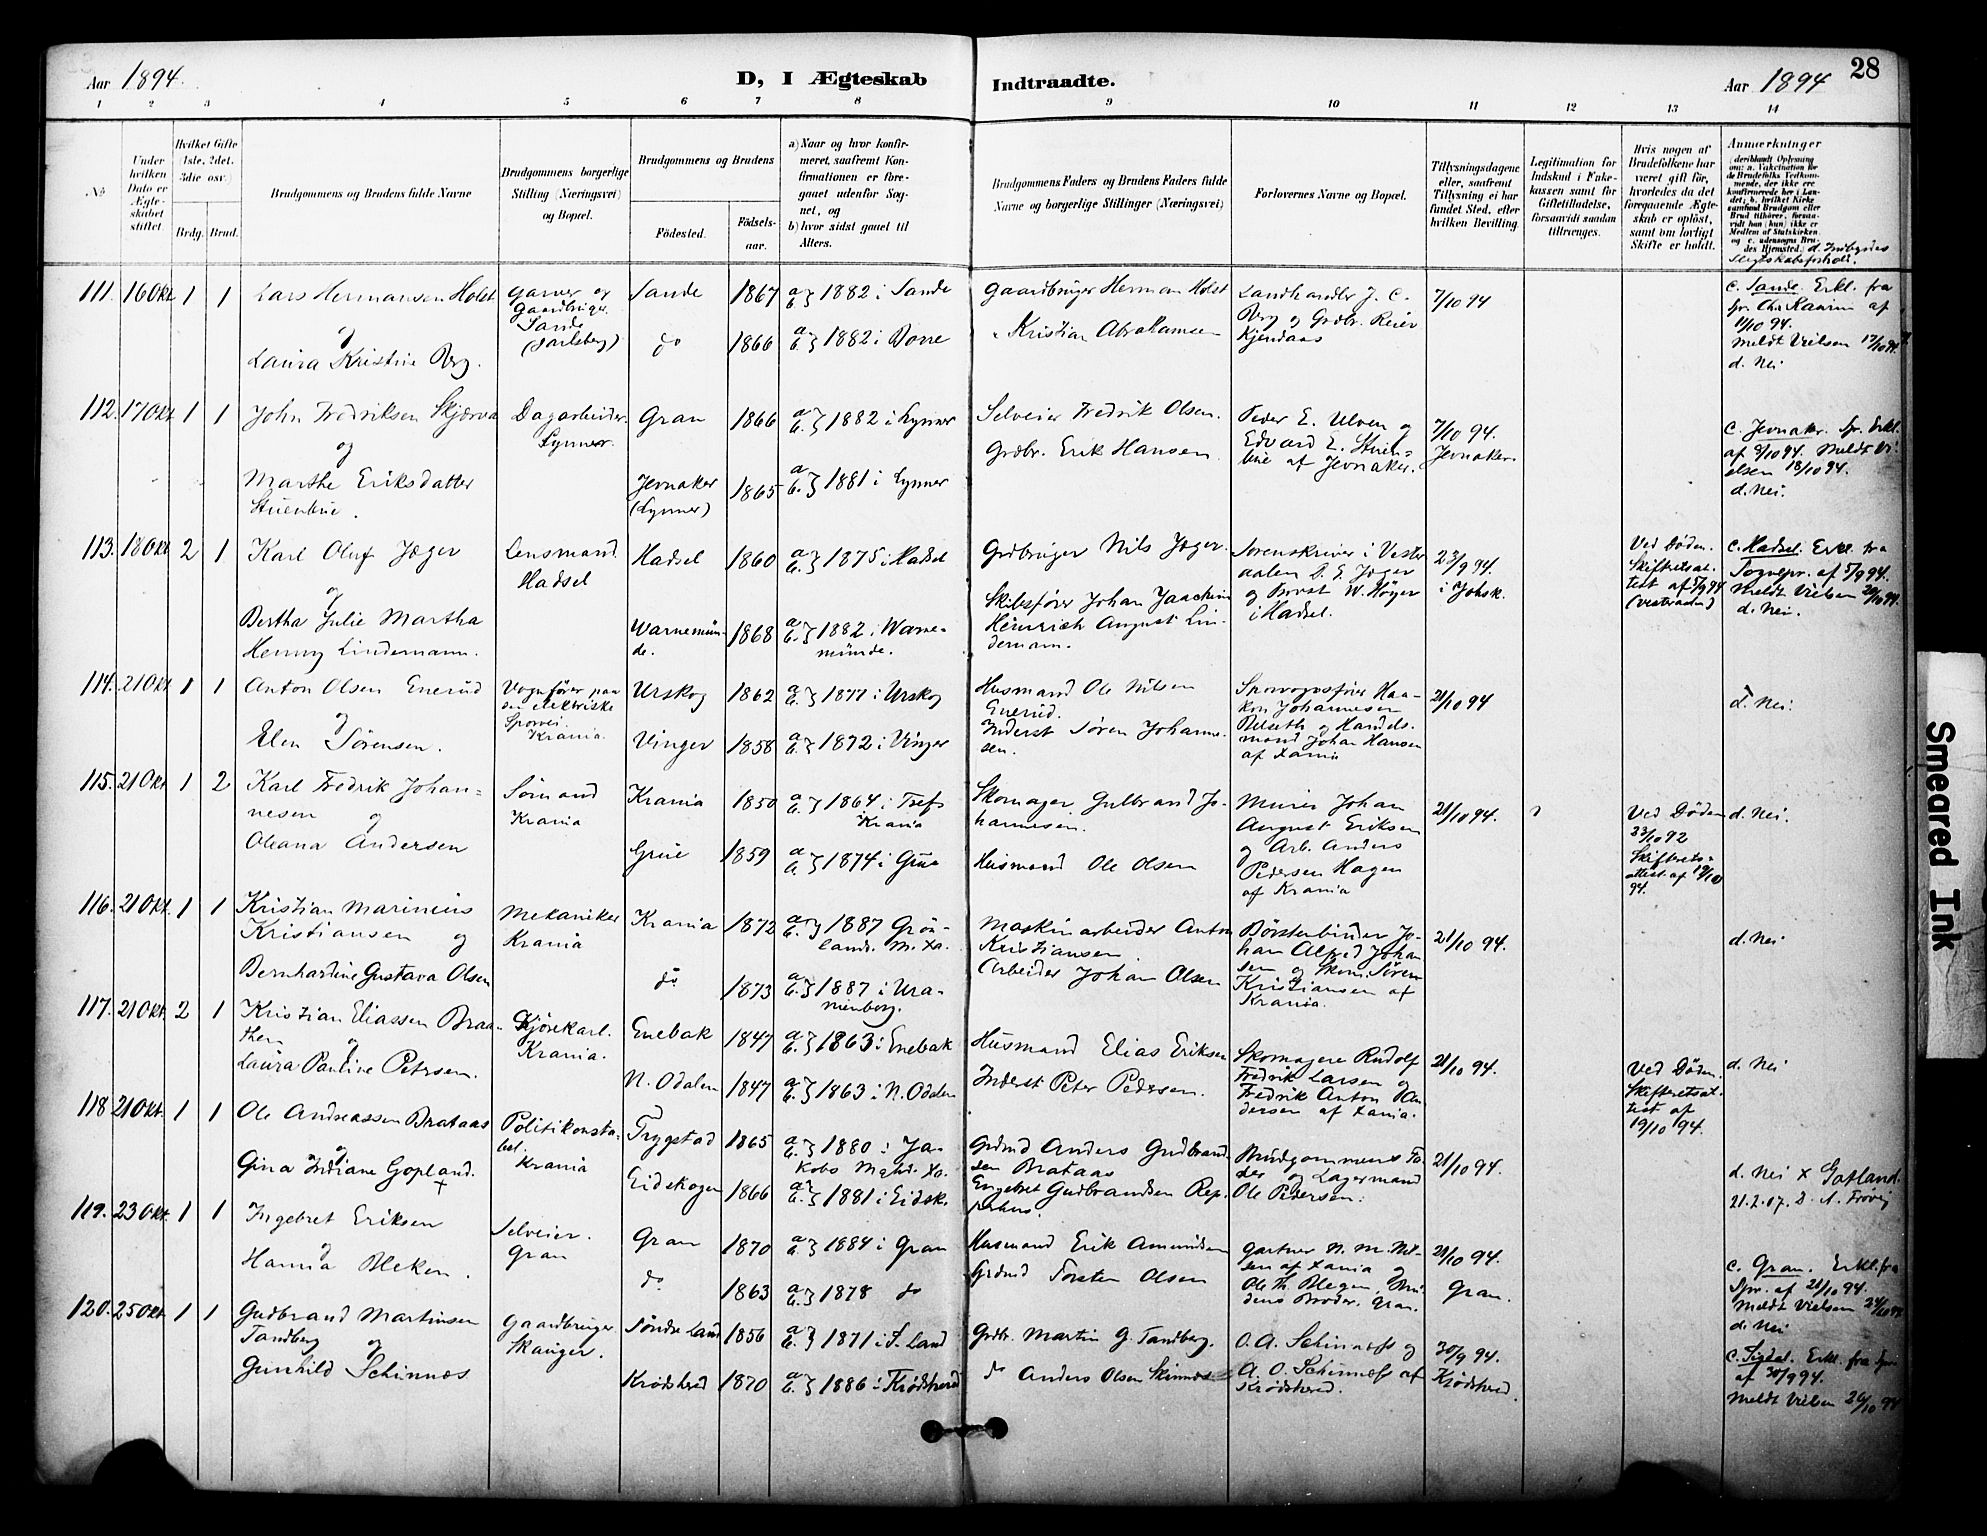 28
Aar 1894.
D, I Ægteskab Indtraadte.
Aar 1894
1 2 3 4 5 6 7 8 9 10 11 12 13 14
No
Under hvilken Dato er Ægteskabet stiftet.
Hvilket Gifte (1ste, 2det, 3die osv.)
Brdg. Brud.
Brudgommens og Brudens fulde Navne
Brudgommens borgerlige Stilling (Næringsvei) og Bopæl.
Brudgommens og Brudens
Fødested. Fødselsaar.
a) Naar og hvor konfirmeret, saafremt Konfirmationen er foregaaet udenfor Sognet, og
b) hvor sidst gaaet til Alters.
Brudgommens Faders og Brudens Faders fulde Navne og borgerlige Stillinger (Næringsvei)
Forlovernes Navne og Bopæl.
Tillysningsdagene eller, saafremt Tillysning ei har fundet Sted, efter hvilken Bevilling.
Legitimation for Indskud i Enkekassen samt for Giftetilladelse, forsaavidt saadan tiltrænges.
Hvis nogen af Brudefolkene har været gift før, hvorledes da det foregaaende Ægteskab er opløst, samt om lovligt Skifte er holdt.
Anmærkninger
d. Indbyrdes Slegtskabsforhold.
111. 16 Okt 1 1 Lars Hermansen Holst
og
Laura Kristine Berg.
Garver og Gaardbruger
Sande
(Jarlsberg)
Sande 1867 a b } 1882 i Sande
do 1866 a b } 1882 i Borre
Gaardbruger Herman Holst
" Kristian Abrahamsen
Landhandler J. C.
Berg og Grdbr. Reier
Kjendaas
7/10 94
c. Sande. Erkl. fra
af
11/10 94.
Meldt Vielsen 17/10 94.
d. Nei
112. 17 Okt 1 1 John Fredriksen Skjærva
og
Marthe Eriksdatter
Stuenbie.
Dagarbeider.
Lynner.
Gran 1866 a b } 1882 i Lynner
Jevnaker
(Lynner) 1865 a b } 1881 i Lynner
Selveier Fredrik Olsen.
Grdbr. Erik Hansen
Peder E. Ulven og
Edvard E. Stuen-
bie af Jevnaker.
7/10 94.
Jevnaker.
c. Jevnaker. Spr. Erkl.
af 8/10 94. Meldt Vi-
elsen 18/10 94.
d. Nei.
113. 18 Okt 2 1 Karl Oluf Jæger
og
Bertha Julie Martha
Henny Lindemann.
Lensmand.
Hadsel
Hadsel 1860 a b } 1875 i Hadsel
Warnemün-
de. 1868 a b } 1882 i Warne-
münde.
Grdbruger Nils Jæger.
Skibsfører Johan Joachim
Heinrich August Lin-
demann.
Sorenskriver i Vester
aalen D. E. Jæger
og Provst W. Høyer
i Hadsel.
23/9 94.
i Johsk.
Ved Døden.
Skifteretsat-
test af 5/9 94
c. Hadsel. Erkl. fra
Sognepr. af 5/9 94.
Meldt Vielsen 20/10 94.
d. Nei.
114. 21 Okt 1 1 Anton Olsen Enerud
og
Elen Sørensen.
Vognfører paa
den elektriske
Sporvei.
Krania.
Urskog 1862 a b } 1877 i Urskog
Vinger 1858 a b } 1872 i Vinger
Husmand Ole Nilsen
Enerud.
Inderst Søren Johanne-
sen.
Sporvognsfører Haa-
kon Johannesen
Belseth og Handels-
mand Johan Hansen
af Xania
21/10 94
d. Nei.
115. 21 Okt 1 2 Karl Fredrik Johan-
nesen og
Oleana Andersen
Sømand
Krania
Krania 1850 a b } 1864 i Trefs
Krania
Grue 1859 a b } 1874 i Grue
Skomager Gulbrand Jo-
hannesen.
Husmand Ole Olsen
Murer Johan
August Eriksen
og Arb. Anders
Pedersen Hagen
af Krania
21/10 94.
Ved Døden
23/10 92
Skifterets-
attest af 19/10
94.
d. Nei.
116. 21 Okt. 1 1 Kristian Marinius
Kristiansen og
Bernhardine Gustava Olsen
Mekaniker
Krania
Krania 1872 a b } 1887 Grøn-
lands. M. Xa.
do 1873 a b } 1887 i Ura-
nienborg.
Maskinarbeider Anton
Kristiansen
Arbeider Johan Olsen
Børstebinder Jo-
han Alfred Johan
sen og Skom. Søren
Kristiansen af
Krania.
21/10 94.
d. Nei
117. 21 Okt. 2 1 Kristian Eliassen Braa-
then og
Laura Pauline Petersen.
Kjørekarl.
Krania.
Enebak 1847 a b } 1863 i Enebak
N. Odalen 1847 a b } 1863 i N. Odalen
Husmand Elias Eriksen
Inderst Peter Pedersen.
Skomagere Rudolf
Fredrik Larsen og
Fredrik Anton An-
dersen af Xania.
21/10 94.
Ved Døden.
Skifteretsat-
test af
19/10 94.
d. Nei
118 21 Okt. 1 1 Ole Andreassen Brataas
og
Gina Indiane Gopland.
Politikonsta-
bel.
Krania
Trygstad 1865 a b } 1880 i Ja-
kobs Mghd. Xa.
Eidskogen 1866 a b } 1881 i Eidsk.
Grdmd Anders Gudbrand-
sen Brataas
Engebret Gudbrandsen Rep-
Brudgommens Fa-
der og Lagermand
Ole Pedersen.
21/10 94.
d. Nei x Gotland.
21.2.07.
119. 23 Okt. 1 1 Ingebret Eriksen
og
Hanna Bleken.
Selveier.
Gran
Gran 1870 a b } 1884 i Gran
do 1863 a b } 1878 do
Husmand Erik Amundsen
Grdmd Torsten Olsen
Gartner N. M. Nil-
sen af Xania og
Ole Th. Blegen, Bru-
dens Broder, Gran.
21/10 94.
Gran.
c. Gran. Erkl. fra
Spr. af 21/10 94.
Meldt Vielsen 24/10 94
d. Nei
120. 25 Okt. 1 1 Gudbrand Martinsen
Tandberg og
Gunhild Schinnæs
Gaardbruger
Skauger.
Søndre Land 1856 a b } 1871 i S. Land
Krødsherred 1870 a b } 1886 i Krødsherred
Grdbr. Martin G. Tandberg.
do Anders Olsen Skinnæs
O. A. Schinnæss og
A. O. Schinnæss af
Krødsherred.
30/9 94.
Krødsherred.
c. Sigdal. Erkl. fra Spr.
af 30/9 94.
Meldt Vielsen 26/10 94
Smeared Ink